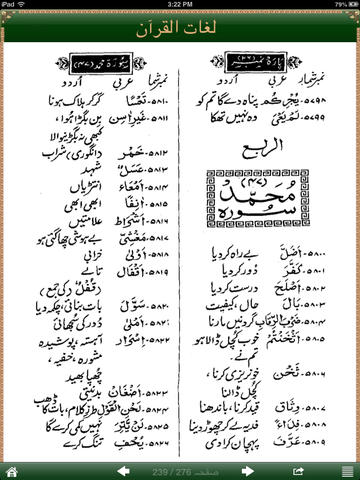 iPad
3:22 PM
79%
لغات القرآن
پارہ نمبر (۲۶)
نمبر شمار عربی اردو
۵۷۹۸- يُجِرْكُمْ پناہ دے گا تم کو
۵۷۹۹- لَمْ يَعْيَ وہ نہیں تھکا
الربع
(۴۷)
سُورَة مُحَمَّد
۵۸۰۰- أَضَلَّ بے راہ کر دیا
۵۸۰۱- كَفَّرَ دور کر دیا
۵۸۰۲- أَصْلَحَ درست کر دیا
۵۸۰۳- بَالَ حال، کیفیت
۵۸۰۴- ضَرْبَ الرِّقَابِ گردنیں مارنا
۵۸۰۵- أَثْخَنْتُمْ خوب کچل ڈالا ہو
تم نے
۵۸۰۶- ثَخْن خونریزی کرنا،
کچل ڈالنا
۵۸۰۷- وِثَاق قید کرنا، باندھنا
۵۸۰۸- فِدَاءً فدیہ لے کر چھوڑ دینا
۵۸۰۹- عَرَّفَ پہچان کرا دی
سورة محمد (۴۷)
نمبر شمار عربی اردو
۵۸۱۰- تَعْسًا گر کر ہلاک ہونا
۵۸۱۱- غَيْرِ آسِن بن بگڑا ہوا،
کبھی نہ بگڑنے والا
۵۸۱۲- خَمْر (انگوری) شراب
۵۸۱۳- عَسَل شہد
۵۸۱۴- أَمْعَاء انتڑیاں
۵۸۱۵- آنِفًا ابھی ابھی
۵۸۱۶- أَشْرَاط علامتیں
۵۸۱۷- مَغْشِيّ بے ہوشی چھا گئی ہو
۵۸۱۸- أَوْلَى خرابی
۵۸۱۹- أَقْفَال تالے
(قُفْل کی جمع)
۵۸۲۰- سَوَّلَ بات بنائی، چکمہ دیا
۵۸۲۱- أَمْلَى دور کی سجھائی
۵۸۲۲- إِسْرَار آہستہ، پوشیدہ
مشورہ، خفیہ،
چھپا بھید
۵۸۲۳- أَضْغَان بدنیتی
۵۸۲۴- لَحْنِ الْقَوْل طرز کلام، بات کا ڈھب
۵۸۲۵- لَنْ يَتِرَ نہیں کمی کرے گا
۵۸۲۶- يُحْفِ تنگ کرے
صفحہ 276 / 239